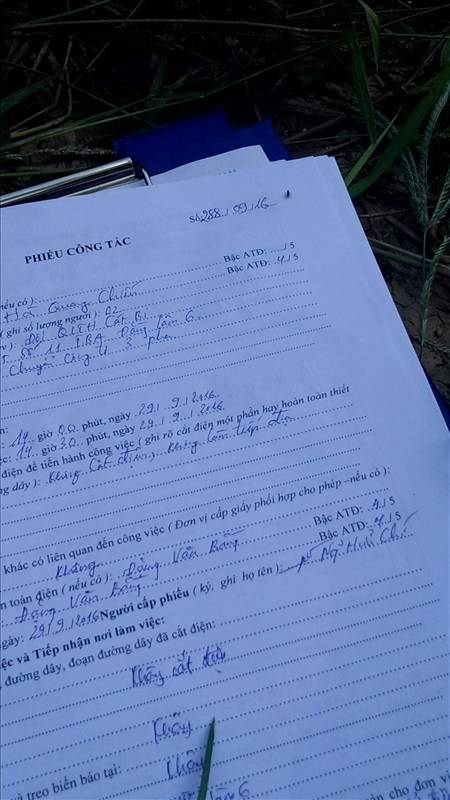 Số 288 / 09 / 16
PHIẾU CÔNG TÁC
nếu có ) : Bậc ATĐ: ..... / 5
Hà Quang Chiến Bậc ATĐ: 4 / 5
( ghi số lượng người ) : 02
Đội QLĐH Cát Bi
11 TBA 6
Chuyển 3 pha
: 14 giờ 00 phút, ngày 29 / 9 / 2016
ệc: 14 giờ 30 phút, ngày 29 / 9 / 2016
điện để tiến hành công việc ( ghi rõ cắt điện một phần hay hoàn toàn thiết
ng dây ) : Không Cắt điện, không làm tiếp địa
khác có liên quan đến công việc ( Đơn vị cấp giấy phối hợp cho phép –nếu có ) :
Không
n toàn điện ( nếu có ) : Đặng Văn Bằng Bậc ATĐ: 4 / 5
: Đặng Văn Bằng Bậc ATĐ: 4 / 5
gày: 29 / 9 / 2016 Người cấp phiếu ( ký, ghi họ tên ) : Ngô Hữu
ệc và Tiếp nhận nơi làm việc:
, đường dây, đoạn đường dây đã cắt điện:
Không cắt điện
Không
và treo biển báo tại: Không
6 àn cho đơn vị